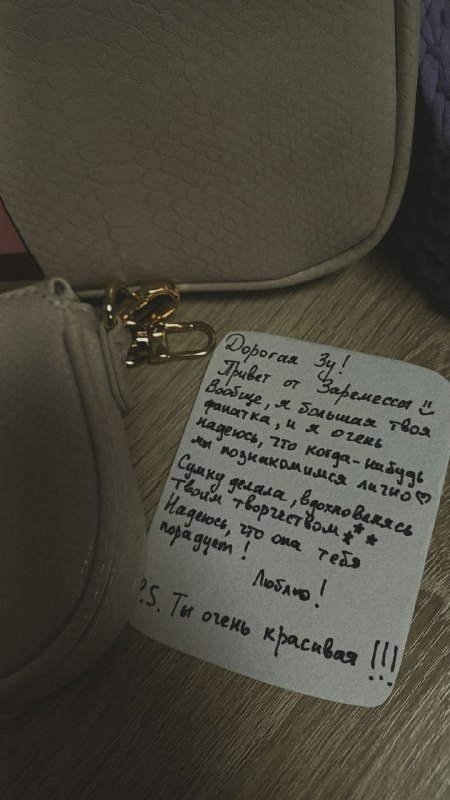 Дорогая Зу!
Привет от Заремессы
Вообще, я большая твоя
фанатка, и я очень
надеюсь, что когда-нибудь
мы познакомимся лично ♡
Сумку делала, вдохновляясь
твоим творчеством ***
Надеюсь, что она тебя
порадует!
Люблю!
P.S. Ты очень красивая !!!